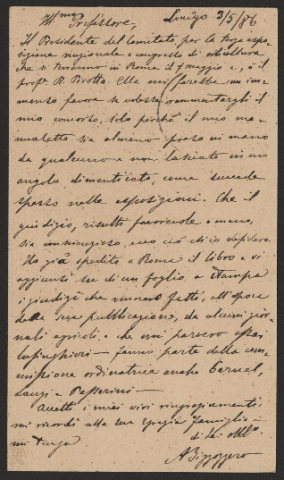 Ill.mo Professore, Lonigo 2/5/86
Il Presidente del Comitato per la terza espo-
sizione nazionale e congresso di orticoltura
che si terranno in Roma il 7 maggio c., è il
prof. R. Pirotta. Ella mi farebbe un im-
menso favore se volesse rammentargli il
mio concorso, solo perchè il mio ma-
nualetto sia almeno preso in mano
da qualcuno e non lasciato in un
angolo dimenticato, come succede
spesso nelle esposizioni. Che il
giudizio, risulti favorevole o meno,
sia coscienzioso, ecco ciò ch'io desidero.
Ho già spedito a Roma il libro e vi
aggiunsi su di un foglio a stampa
i giudizii che vennero fatti, all'epoca
della sua pubblicazione, da alcuni gior-
nali agricoli e che mi parvero assai
lusinghieri — fanno parte della com-
missione ordinatrice anche
e Passerini —
Accetti i miei vivi ringraziamenti
mi ricordi alla sua famiglia —
mi tenga di Lei obbl.o
A Bizzozzero